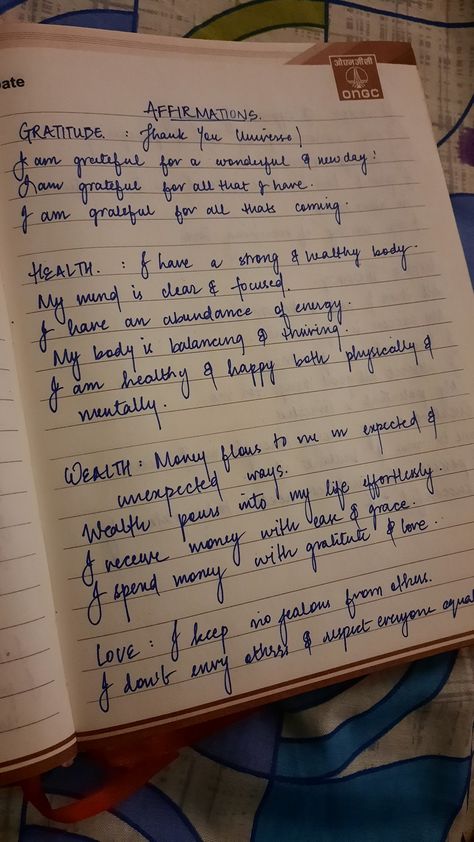 ate
ओएनजीसी
ONGC
AFFIRMATIONS.
GRATITUDE : Thank You Universe!
I am grateful for a wonderful & new day!
I am grateful for all that I have.
I am grateful for all thats coming.
HEALTH : I have a strong & healthy body.
My mind is clear & focused.
I have an abundance of energy.
My body is balancing & thriving.
I am healthy & happy both physically &
mentally.
WEALTH : Money flows to me in expected &
unexpected ways.
Wealth pours into my life effortlessly.
I receive money with ease & grace.
I spend money with gratitude & love.
LOVE : I keep no jealous from others.
I don't envy others & respect everyone equal